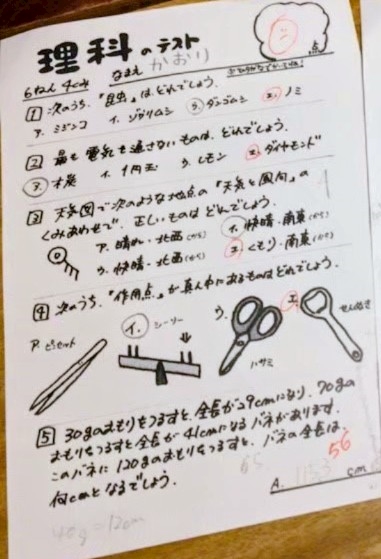 理科のテスト
なまえ かおり
点
6ねん4くみ
1 次のうち、「昆虫」は、どれでしょう。
ア. ミジンコ イ. ゾウリムシ ウ. ダンゴムシ エ. ノミ
2 最も電気を通さないものは、どれでしょう。
ア. 木炭 イ. 1円玉 ウ. レモン エ. ダイヤモンド
3 天気図で次のような地点の「天気と風向」の
くみあわせで、正しいものはどれでしょう。
ア. 晴れ・北西(から) イ. 快晴・南東(から)
ウ. 快晴・北西(から) エ. くもり・南東(から)
4 次のうち、「作用点」が真ん中にあるものはどれでしょう。
ア. ピンセット イ. シーソー ウ. ハサミ エ. せんぬき
5 30gのおもりをつるすと、全長が29cmになり、70gの
おもりをつるすと全長が41cmになるバネがあります。
このバネに120gのおもりをつるすと、バネの全長は、
何cmとなるでしょう。
56
65
A. cm
40g=12cm